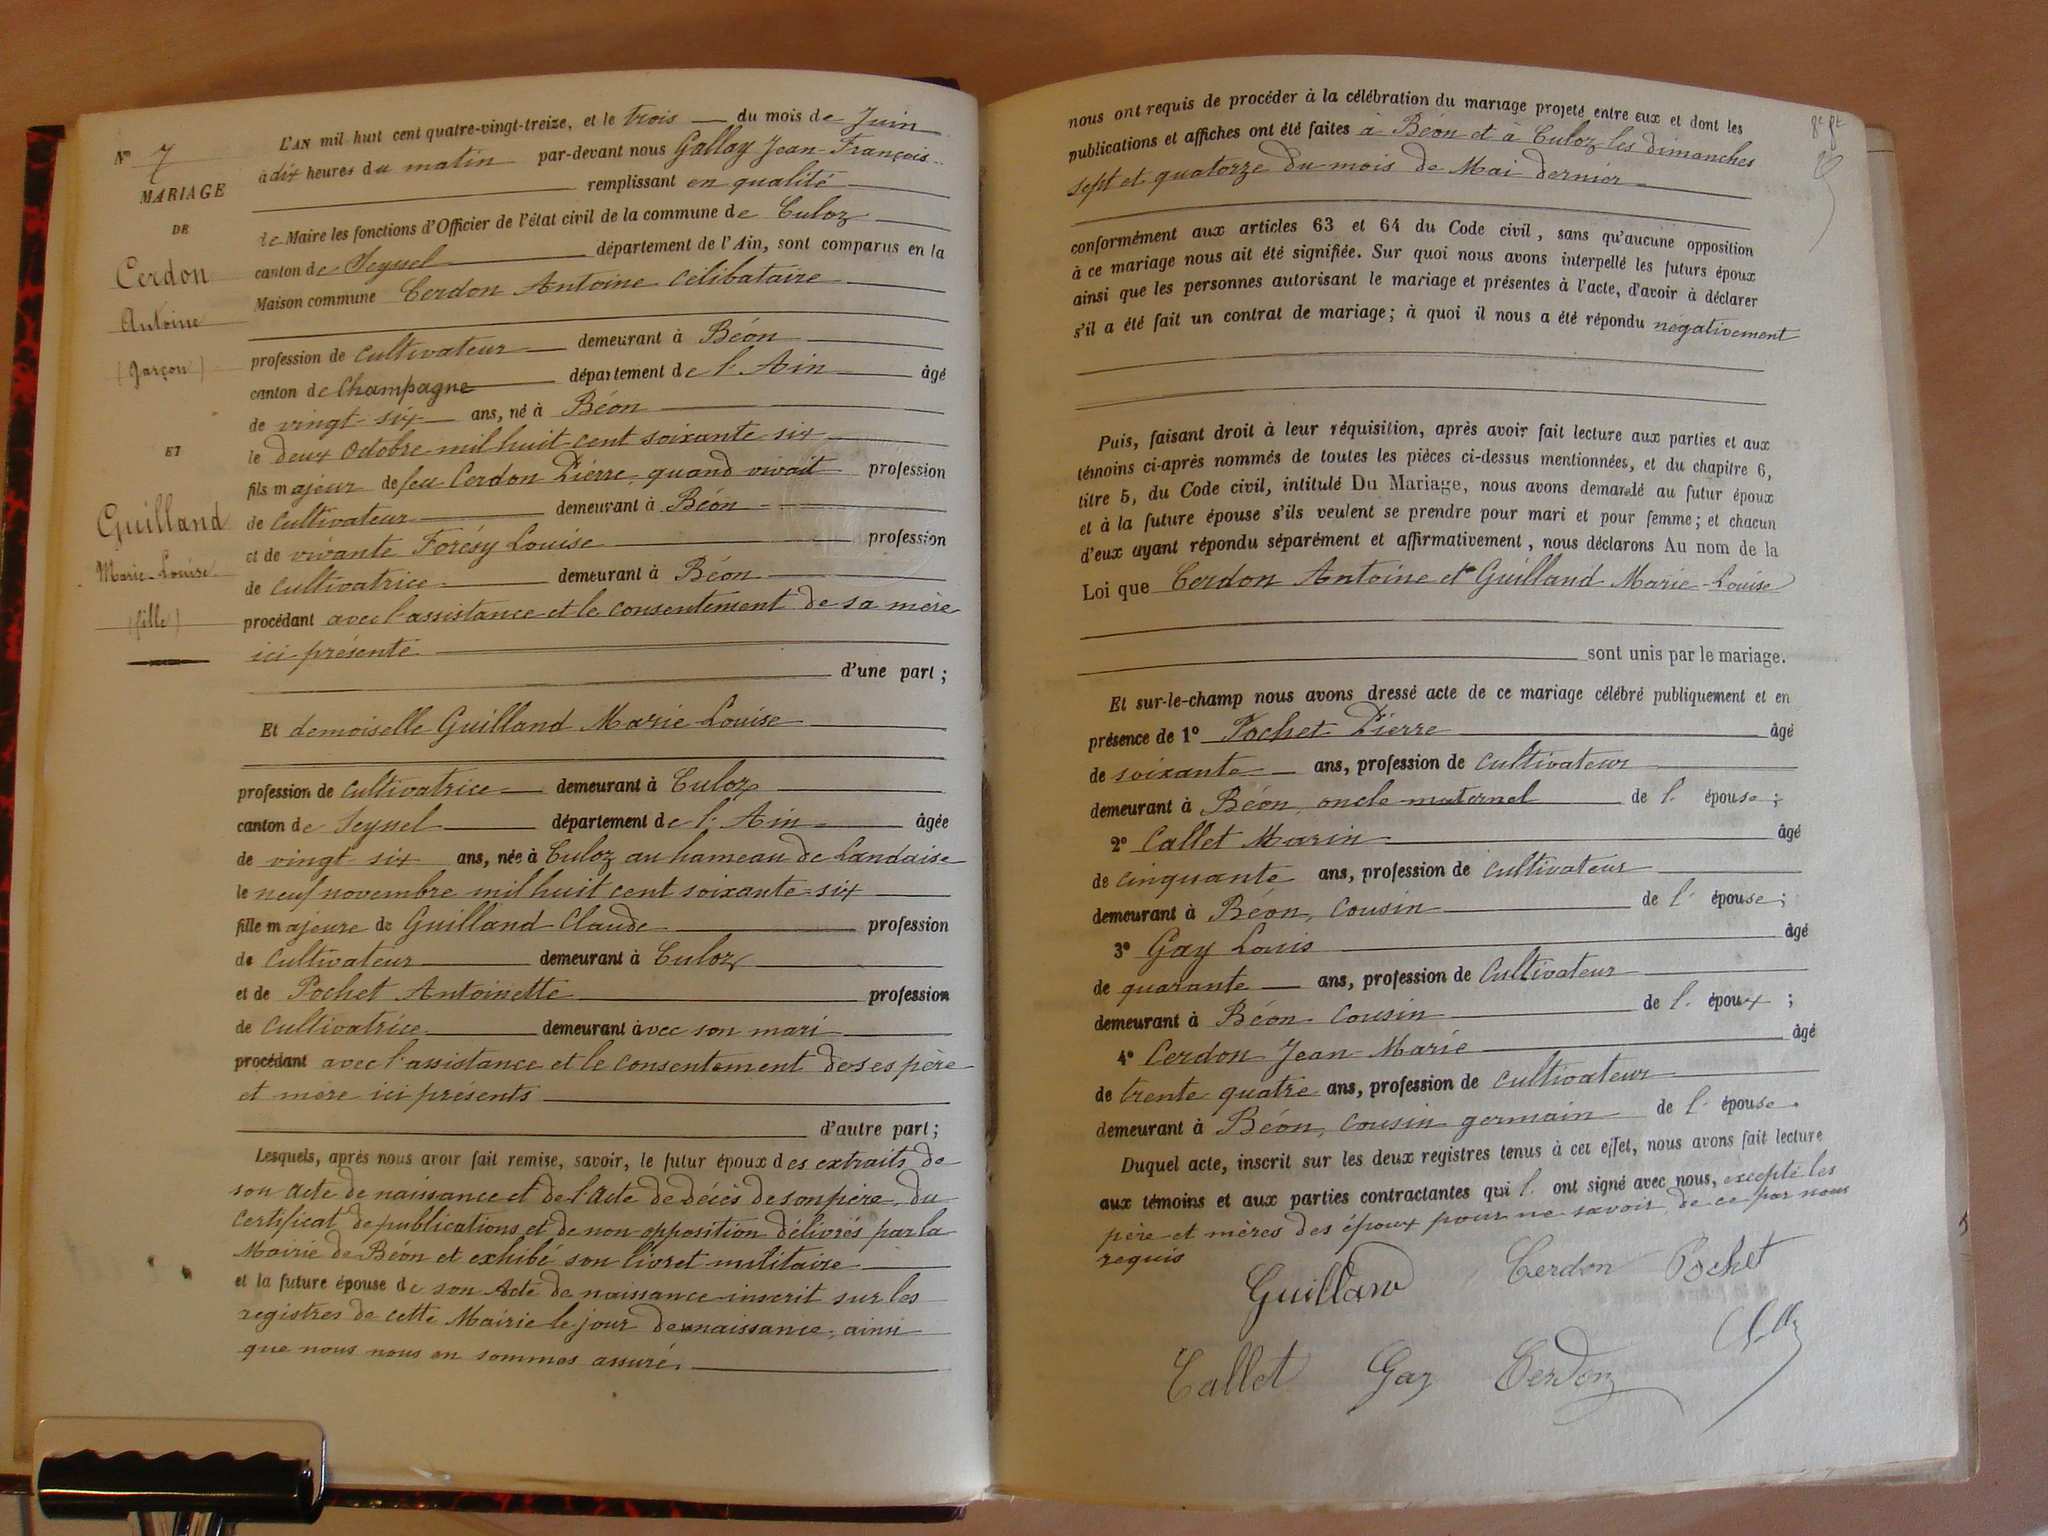 N° 7
MARIAGE
DE
Cerdon
Antoine
(garçon)
ET
Guilland
Marie-Louise
(fille)
L'AN mil huit cent quatre-vingt-treize, et le trois du mois de Juin
à dix heures du matin par-devant nous Gallay Jean-François
remplissant en qualité
de Maire les fonctions d'Officier de l'état civil de la commune de Culoz
canton de Seyssel département de l'Ain, sont comparus en la
Maison commune Cerdon Antoine célibataire
profession de cultivateur demeurant à Béon
canton de Champagne département de l'Ain âgé
de vingt-six ans, né à Béon
le deux Octobre mil huit-cent soixante-six
fils majeur de feu Cerdon Pierre quand vivait profession
de cultivateur demeurant à Béon
et de vivante Forésy Louise profession
de cultivatrice demeurant à Béon
procédant avec l'assistance et le consentement de sa mère
ici présente
d'une part;
Et demoiselle Guilland Marie Louise
profession de cultivatrice demeurant à Culoz
canton de Seyssel département de l'Ain âgée
de vingt-six ans, née à Culoz au hameau de Landaise
le neuf novembre mil huit cent soixante-six
fille majeure de Guilland Claude profession
de cultivateur demeurant à Culoz
et de Pochet Antoinette profession
de cultivatrice demeurant avec son mari
procédant avec l'assistance et le consentement de ses père
et mère ici présents
d'autre part;
Lesquels, après nous avoir fait remise, savoir, le futur époux des extraits de
son acte de naissance et de l'acte de décès de son père, du
certificat de publications et de non opposition délivrés par la
Mairie de Béon et exhibé son livret militaire
et la future épouse de son Acte de naissance inscrit sur les
registres de cette Mairie le jour de naissance, ainsi
que nous nous en sommes assuré.
nous ont requis de procéder à la célébration du mariage projeté entre eux et dont les
publications et affiches ont été faites à Béon et à Culoz les dimanches
sept et quatorze du mois de Mai dernier
conformément aux articles 63 et 64 du Code civil, sans qu'aucune opposition
à ce mariage nous ait été signifiée. Sur quoi nous avons interpellé les futurs époux
ainsi que les personnes autorisant le mariage et présentes à l'acte, d'avoir à déclarer
s'il a été fait un contrat de mariage; à quoi il nous a été répondu négativement
Puis, faisant droit à leur réquisition, après avoir fait lecture aux parties et aux
témoins ci-après nommés de toutes les pièces ci-dessus mentionnées, et du chapitre 6,
titre 5, du Code civil, intitulé Du Mariage, nous avons demandé au futur époux
et à la future épouse s'ils veulent se prendre pour mari et pour femme; et chacun
d'eux ayant répondu séparément et affirmativement, nous déclarons Au nom de la
Loi que Cerdon Antoine et Guilland Marie-Louise
sont unis par le mariage.
Et sur-le-champ nous avons dressé acte de ce mariage célébré publiquement et en
présence de 1° Pochet Pierre âgé
de soixante ans, profession de cultivateur
demeurant à Béon, oncle maternel de l'épouse;
2° Callet Marin âgé
de cinquante ans, profession de cultivateur
demeurant à Béon, cousin de l'épouse;
3° Gay Louis âgé
de quarante ans, profession de cultivateur
demeurant à Béon cousin de l'époux;
4° Cerdon Jean-Marie âgé
de trente quatre ans, profession de cultivateur
demeurant à Béon, cousin germain de l'épouse.
Duquel acte, inscrit sur les deux registres tenus à cet effet, nous avons fait lecture
aux témoins et aux parties contractantes qui l'ont signé avec nous, excepté les
père et mères des époux pour ne savoir, de ce par nous
requis
Guilland Cerdon Pochet
Callet Gay Cerdon